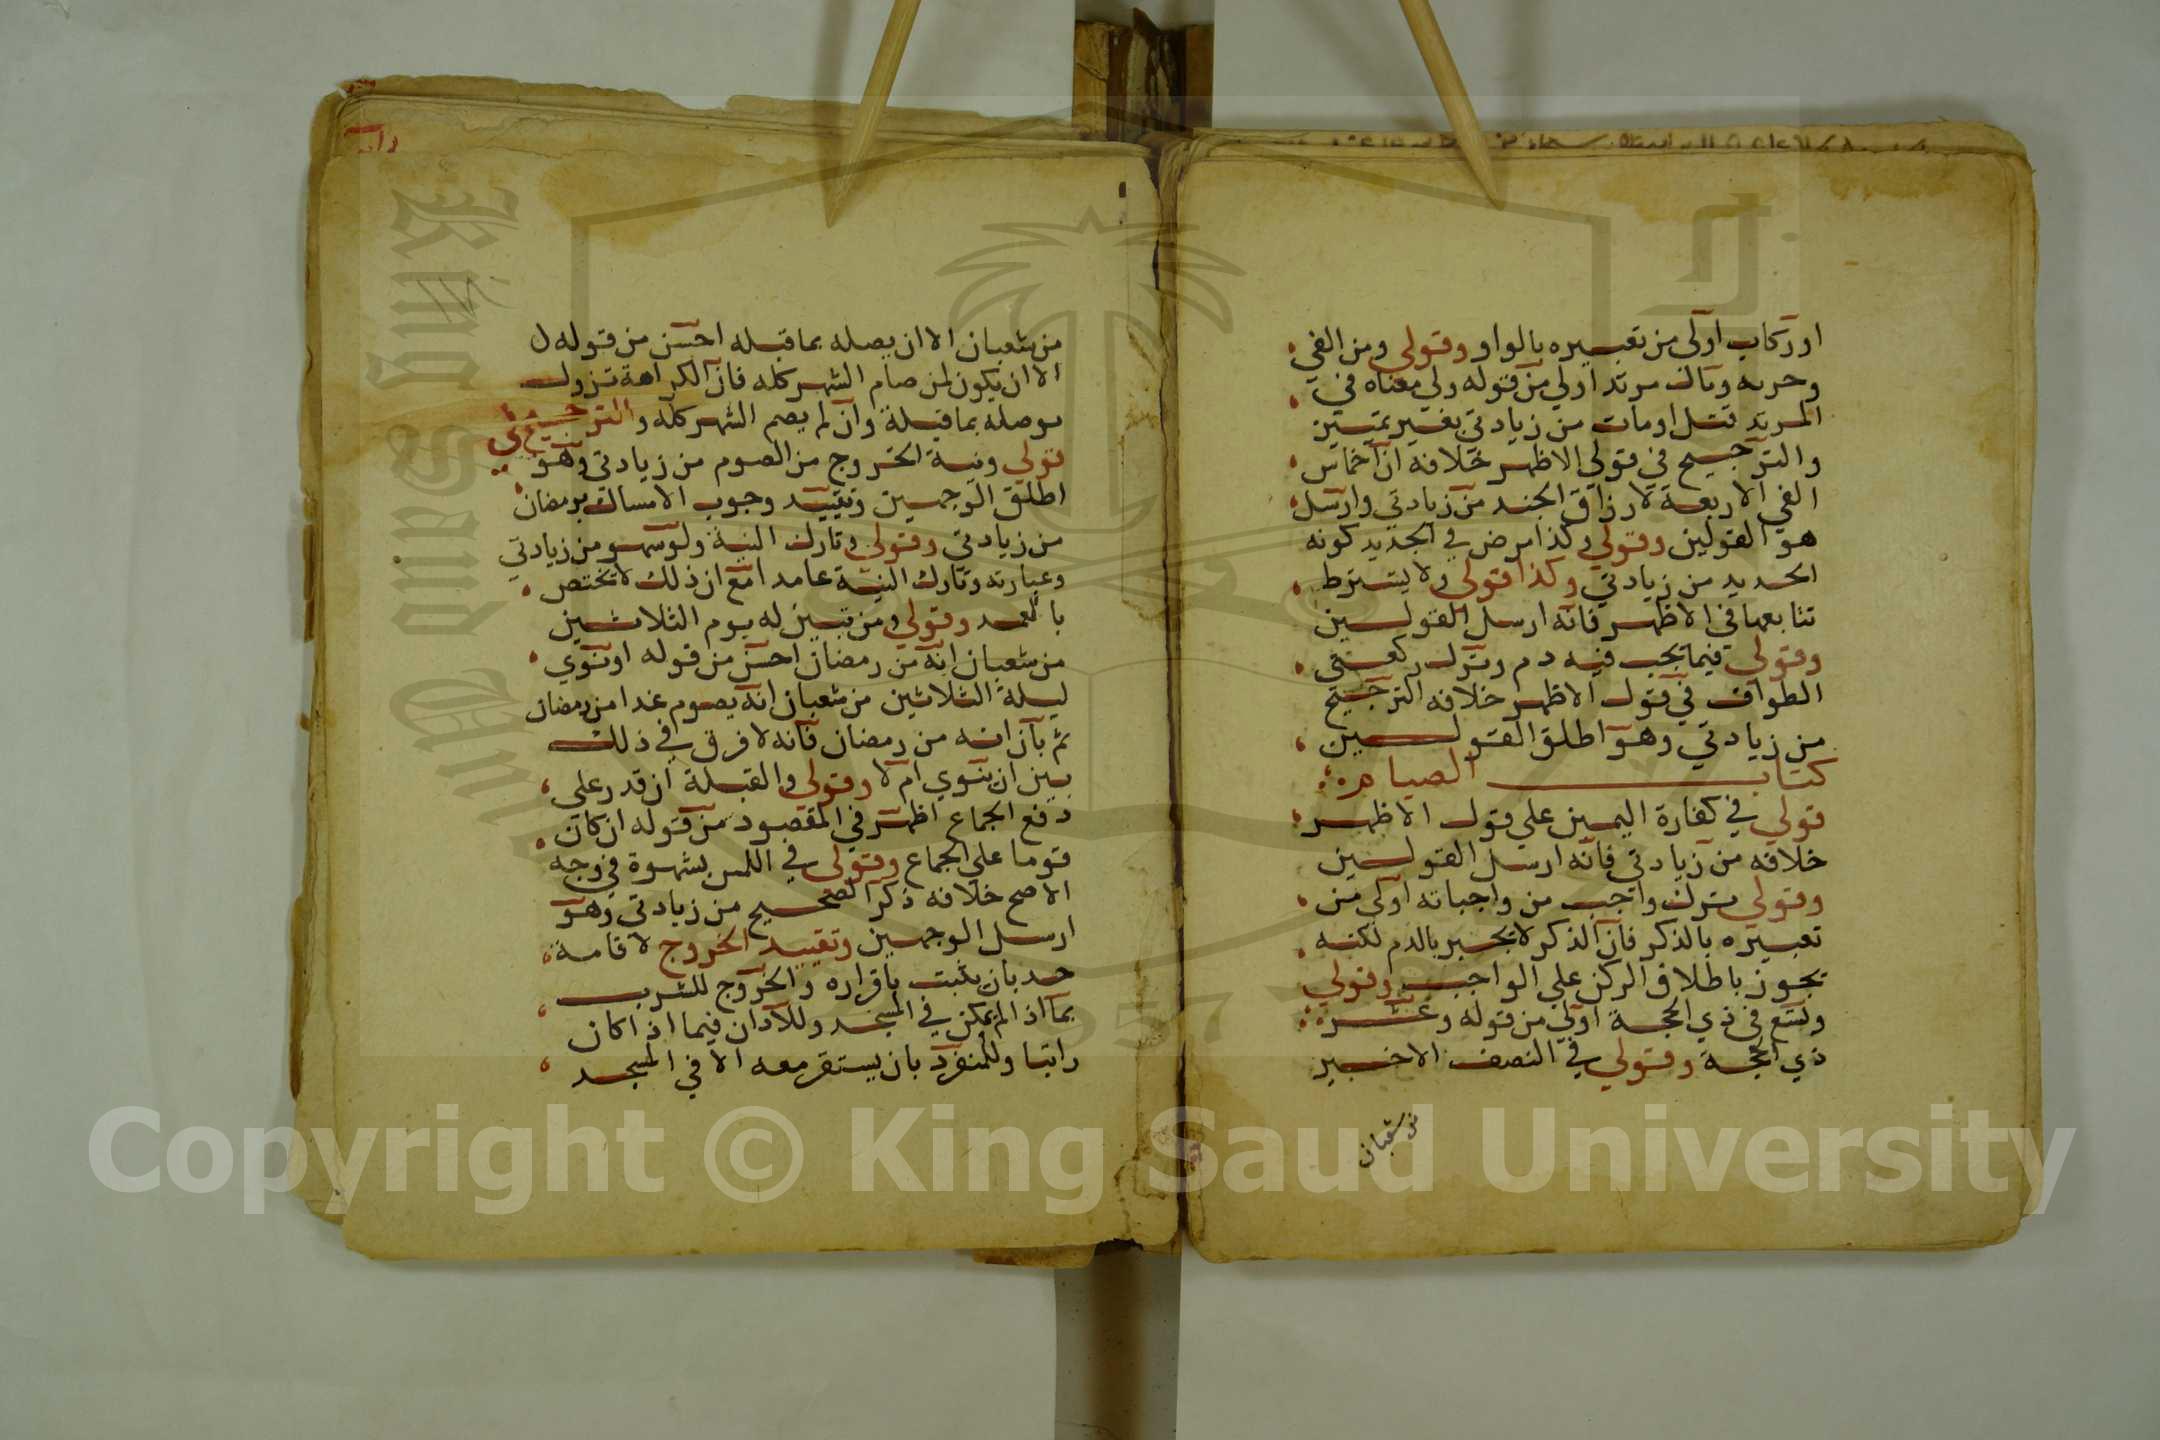 او ركاب اولى من تعبيره بالواو وقولي ومن الفي
وحربه ومال مرتد اولي من قوله ولي معناه في
المرتد قتل او مات من زيادتي بغير تمييز
والترجيح في قولي الاظهر خلافه ان اخماس
الفي الاربعة لارزاق الجند من زيادتي وارسل
هو القولين وقولي كذا مرض في الجديد كونه
الجديد من زيادتي وكذا قولي ولا يشترط
تتابعها في الاظهر فانه ارسل القولين
وقولي فيما يجب فيه دم وترك ركعتي
الطواف في قول الاظهر خلافه الترجيح
من زيادتي وهو اطلق القولين
كتاب الصيام
قولي في كفارة اليمين علي قول الاظهر
خلافه من زيادتي فانه ارسل القولين
وقولي بترك واجب من واجباته اولى من
تعبيره بالذكر فان الذكر لا يجبر بالدم لكنه
تجوز باطلاق الركن علي الواجب وقولي
وتسع في ذي الحجة اولي من قوله وعشر
ذي الحجة وقولي في النصف الاخير
من شعبان
من شعبان الا ان يصله بما قبله احسن من قوله ل
الا ان يكون لمن صام الشهر كله فان الكراهة تزول
بوصله بما قبلة وان لم يصم الشهر كله والترجيح في
قولي ونية الخروج من الصوم من زيادتي وهو
اطلق الوجهين وتقييد وجوب الامساك برمضان
من زيادتي وقولي وتارك النية ولو سهو من زيادتي
وعبارته وتارك النية عامدا مع ان ذلك لا يختص
بالعمد وقولي ومن تبين له يوم الثلاثين
من شعبان انه من رمضان احسن من قوله او نوي
ليلة الثلاثين من شعبان انه يصوم غدا من رمضان
ثم بان انه من رمضان فانه لا فرق في ذلك
بين ان ينوي ام لا وقولي والقبلة ان قدر على
دفع الجماع اظهر في المقصود من قوله ان كان
قوما علي الجماع وقولي في اللمس بشهوة في وجه
الاصح خلافه ذكر الصحيح من زيادتي وهو
ارسل الوجهين وتقييد الخروج لاقامة
حد بان يثبت باقراره والخروج للشرب
بما اذا لم يمكن في المسجد وللآذان فيما اذا كان
راتبا وللمنفرد بان يستقر معه الا في المسجد
King Saud University
1957
Copyright © King Saud University